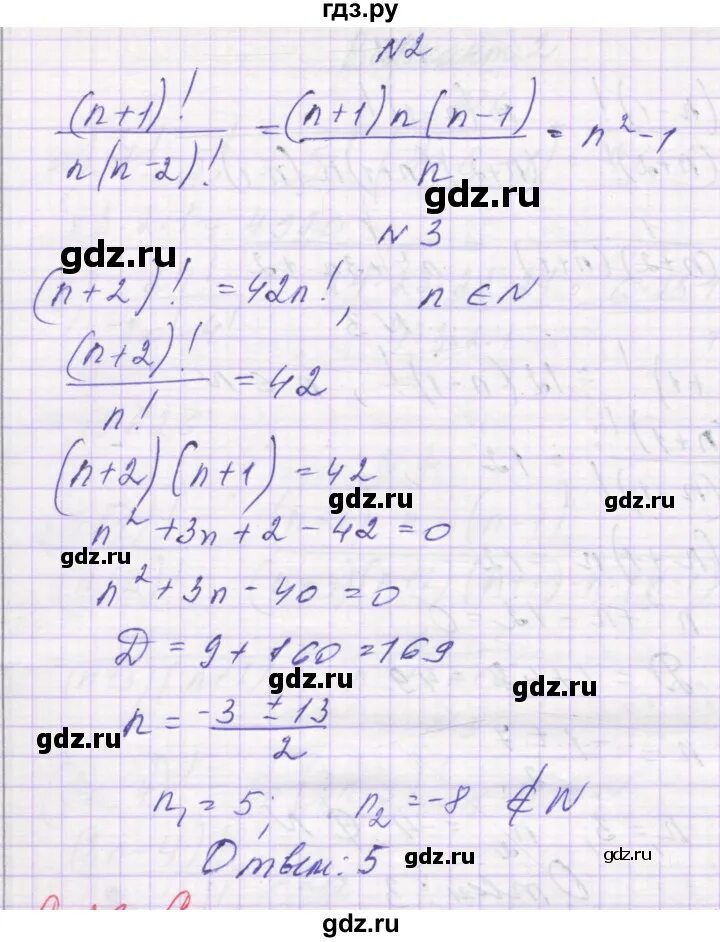 гдз.ру
N2
(n+1)! / n(n-2)! = (n+1)n(n-1) / n = n²-1
gdz.ru
N3
gdz.ru
(n+2)! = 42n!, n ∈ N
(n+2)! / n! = 42
(n+2)(n+1) = 42
gdz.ru gdz.ru
n²+3n+2-42=0
gdz.ru
n²+3n-40=0
D = 9+160=169
gdz.ru gdz.ru
n = -3 ± 13 / 2
gdz.ru
n₁ = 5; n₂ = -8 ∉ N
Ответ: 5
gdz.ru gdz.ru
gdz.ru